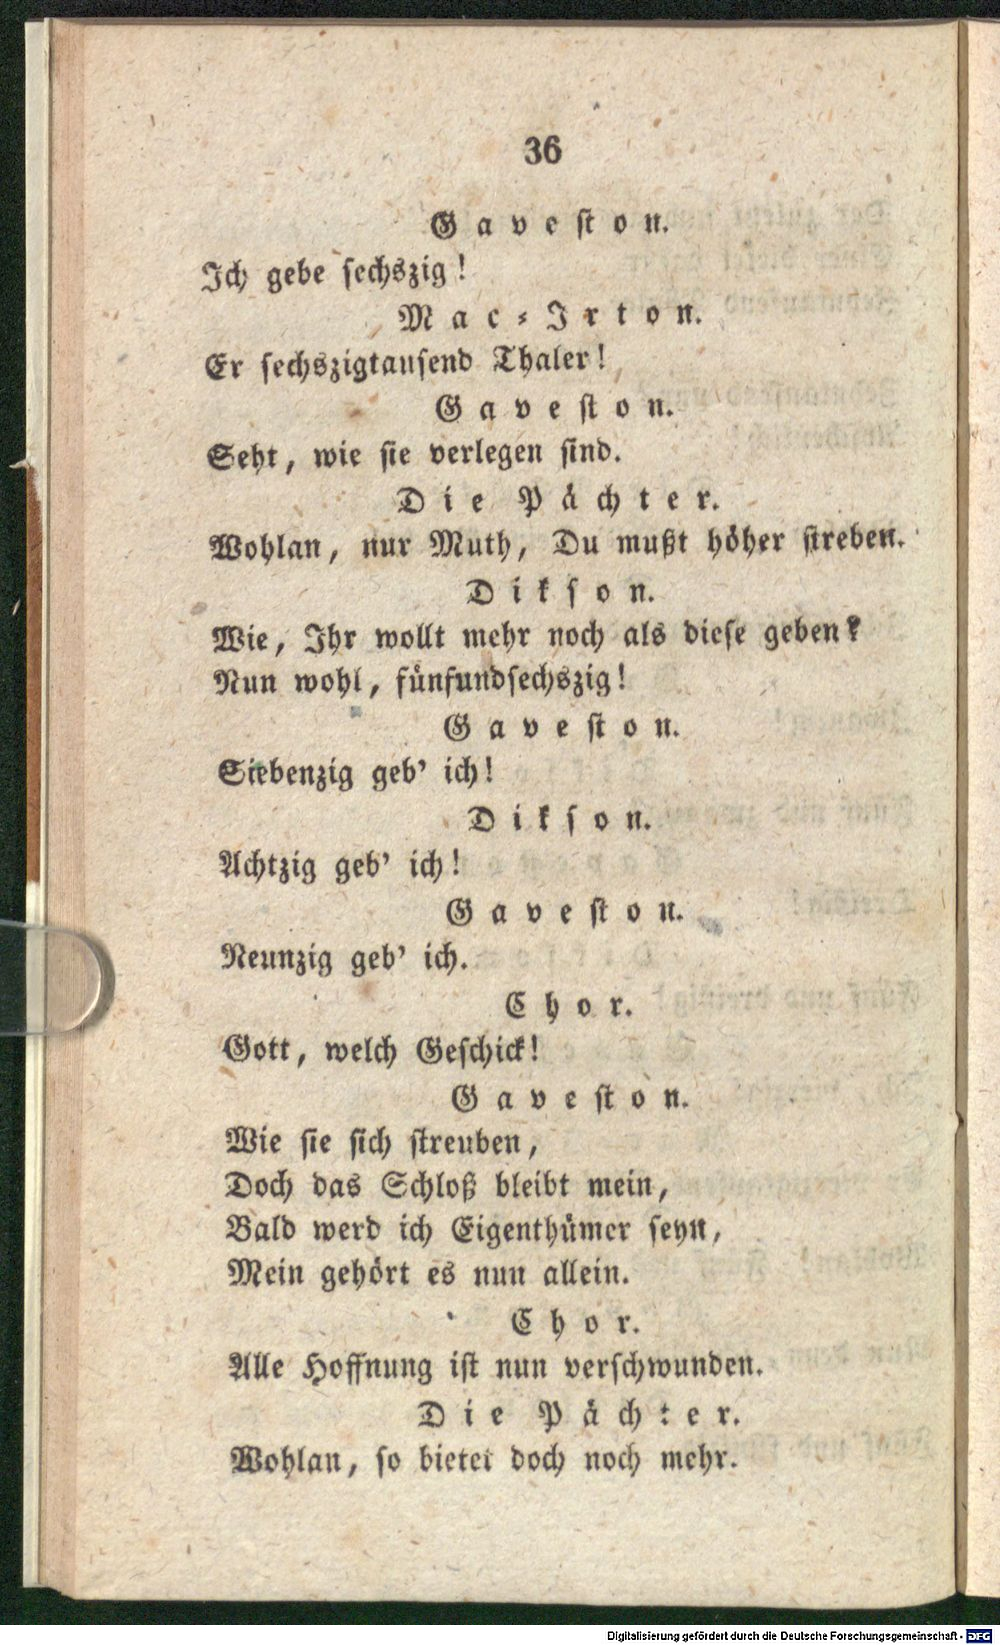 36
Gaveston.
Ich gebe sechszig!
Mac-Irton.
Er sechszigtausend Thaler!
Gaveston.
Seht, wie sie verlegen sind.
Die Pächter.
Wohlan, nur Muth, Du mußt höher streben.
Dikson.
Wie, Ihr wollt mehr noch als diese geben?
Nun wohl, fünfundsechszig!
Gaveston.
Siebenzig geb' ich!
Dikson.
Achtzig geb' ich!
Gaveston.
Neunzig geb' ich.
Chor.
Gott, welch Geschick!
Gaveston.
Wie sie sich streuben,
Doch das Schloß bleibt mein,
Bald werd ich Eigenthümer seyn,
Mein gehört es nun allein.
Chor.
Alle Hoffnung ist nun verschwunden.
Die Pächter.
Wohlan, so bietet doch noch mehr.
Digitalisierung gefördert durch die Deutsche Forschungsgemeinschaft - DFG